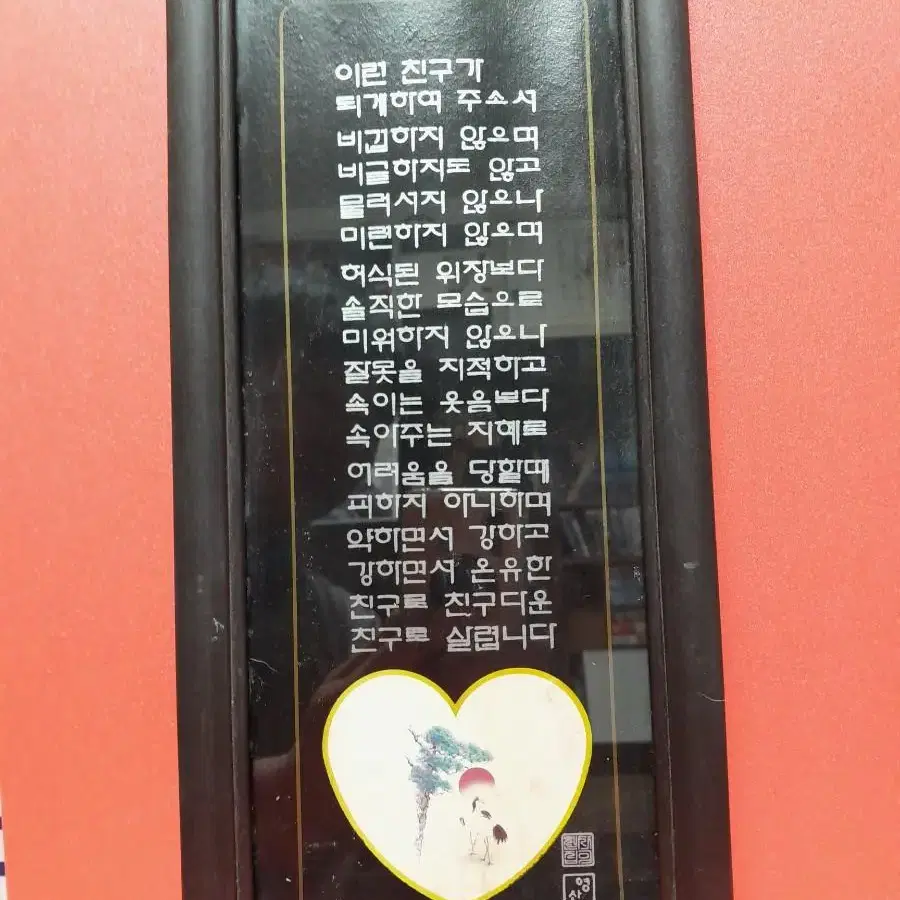 이런 친구가
되게하여 주소서
비겁하지 않으며
비굴하지도 않고
물러서지 않으나
미련하지 않으며
허식된 위장보다
솔직한 모습으로
미워하지 않으나
잘못을 지적하고
속이는 웃음보다
속아주는 지혜로
어려움을 당할때
피하지 아니하며
약하면서 강하고
강하면서 온유한
친구로 친구다운
친구로 살렵니다